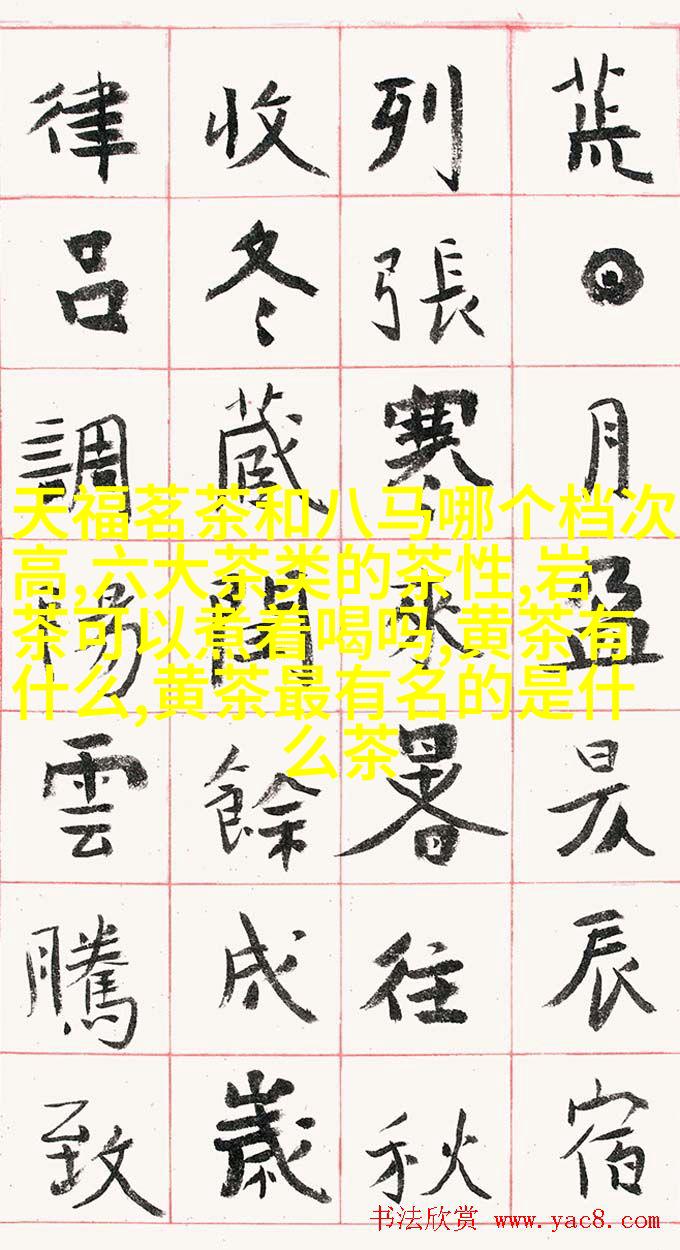 荒日月盈昃辰宿
列張寒來暑往秋
收冬藏閏餘成歲
律吕調陽雲騰致
天福茗茶和八马哪个档次
高,六大茶类的茶性,岩
茶可以煮着喝吗,黄茶有
什么,黄茶最有名的是什
么茶
书法欣赏 www.yac8.com